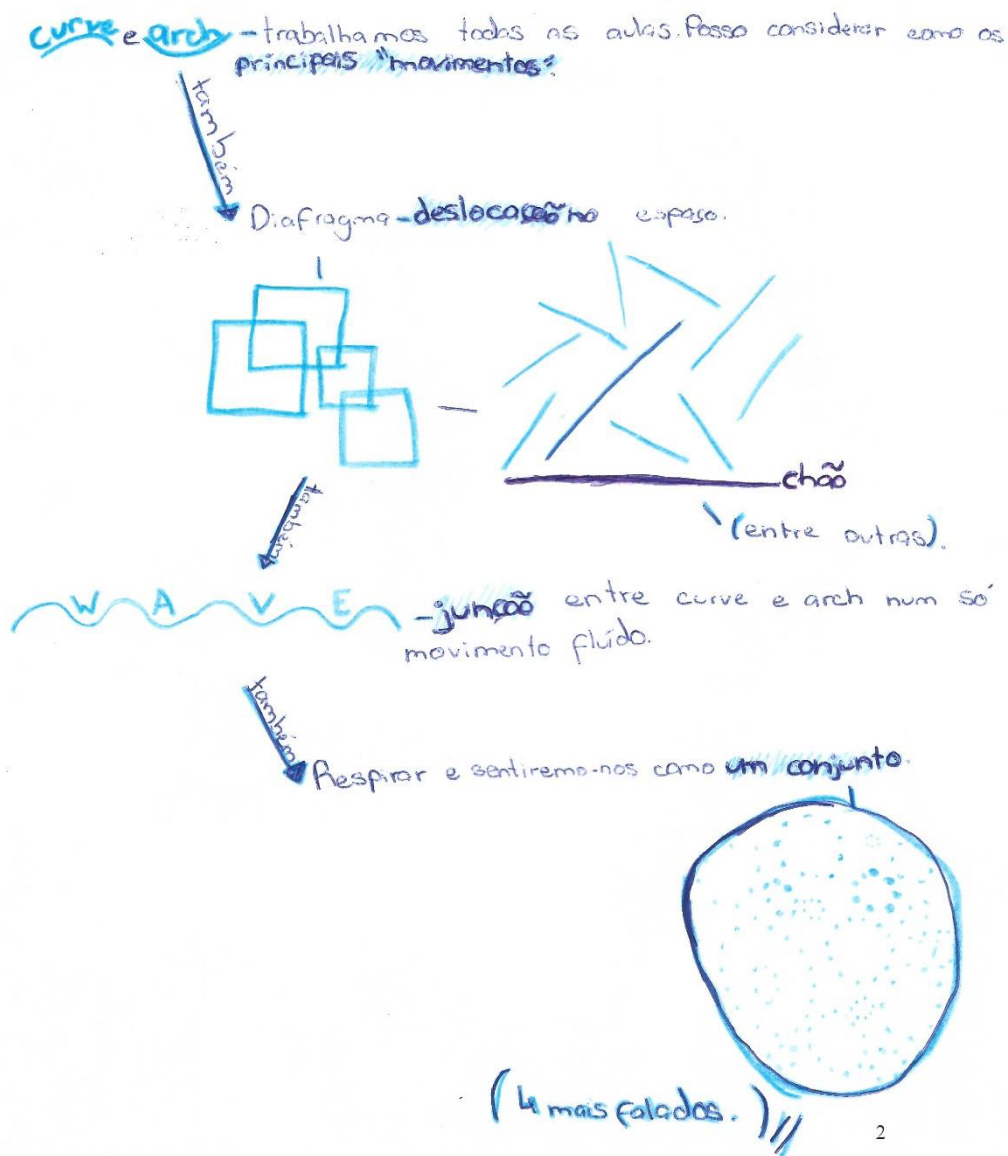 curve e arch - trabalhamos todas as aulas. Posso considerar como os
principais "movimentos".
também
Diafragma - deslocação no espaso.
chão
(entre outras).
também
WAVE - junção entre curve e arch num só
movimento fluído.
também
Respirar e sentiremo-nos como um conjunto.
(4 mais falados.)
2